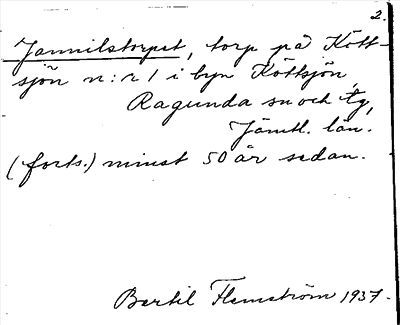 2.
Jannilstorpet, torp på Kött-
sjön n:r 1 i byn Köttsjön,
Ragunda sn och tg,
Jämtl. län.
(forts.) minst 50 år sedan.
Bertil Flemström 1937.